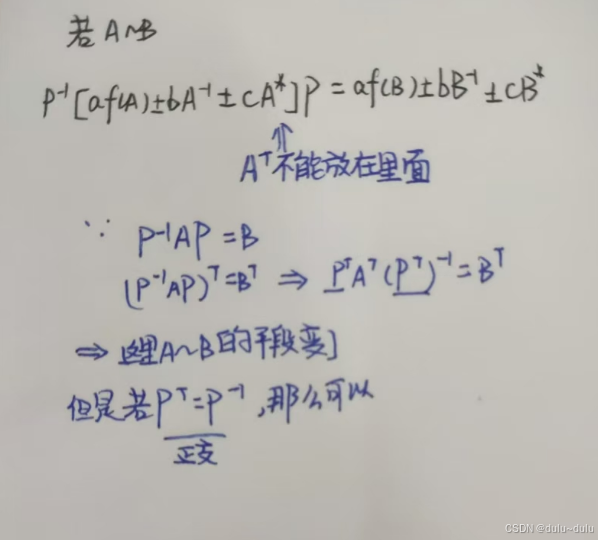 若 A~B
P⁻¹[af(A)±bA⁻¹±cA*]P=af(B)±bB⁻¹±cB*
Aᵀ不能放在里面
∵ P⁻¹AP=B
(P⁻¹AP)ᵀ=Bᵀ ⇒ PᵀAᵀ(Pᵀ)⁻¹=Bᵀ
⇒ 这里A~B的手段变了
但是若Pᵀ=P⁻¹,那么可以
正交
CSDN @dulu~dulu